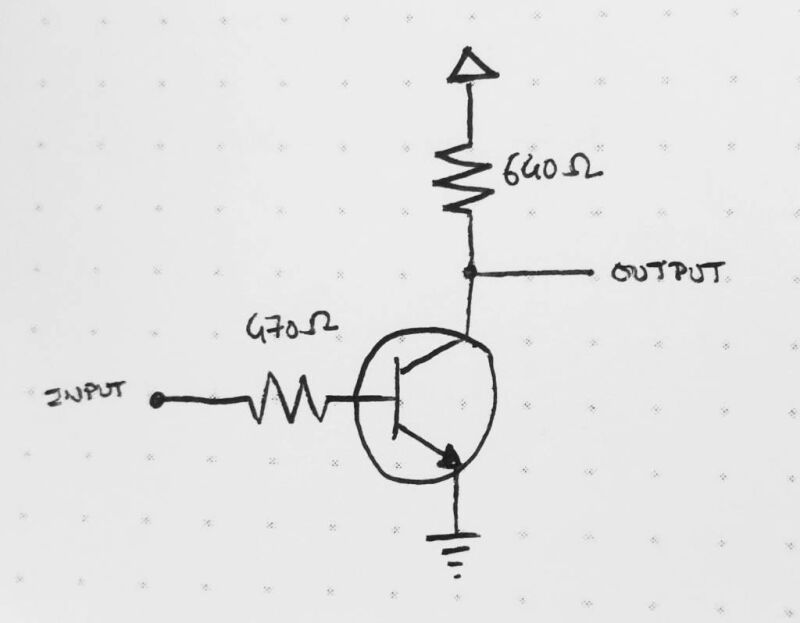 640Ω
OUTPUT
470Ω
INPUT